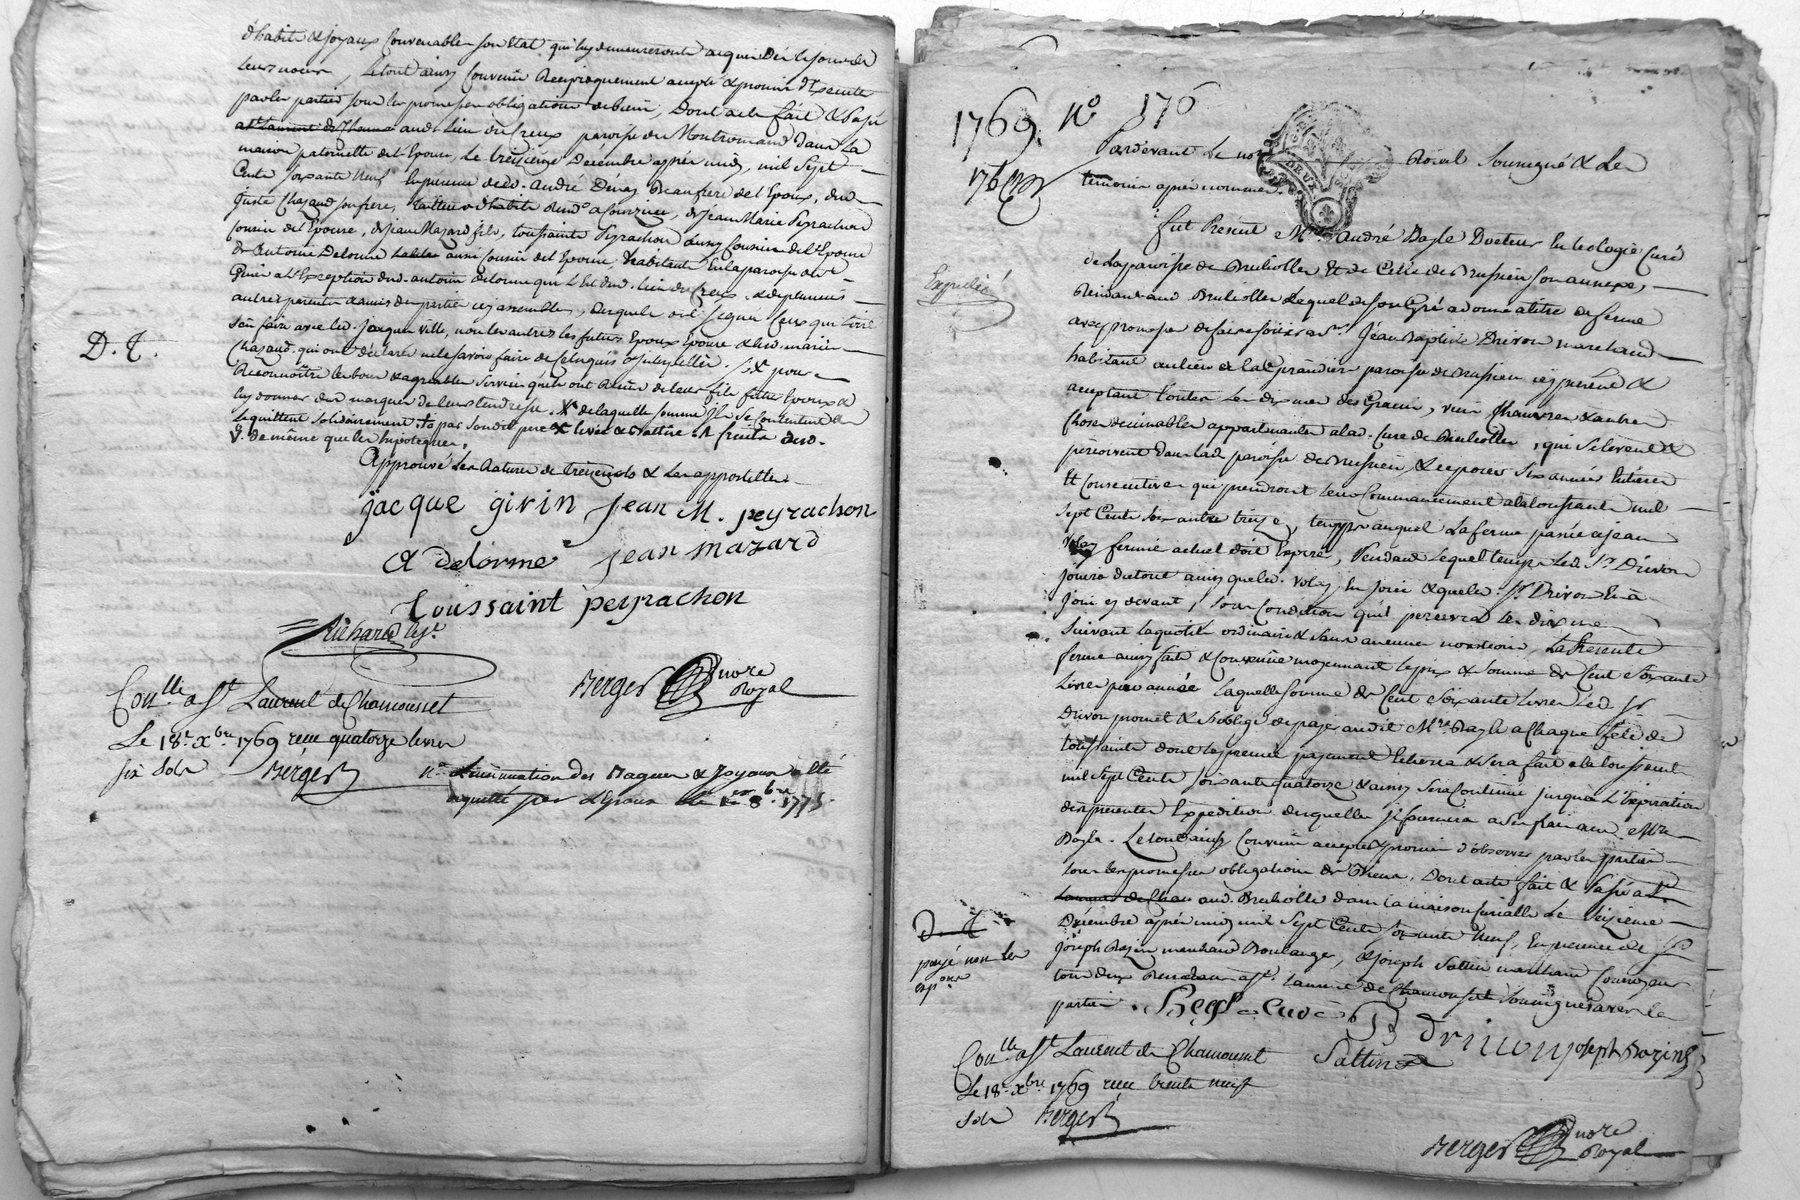 d'habits & joyaux convenables son état qui luy demeureront acquis dès le jour de
leurs noces, le tout ainsy convenu reciproquement accepté & promis d'executer
par les parties sous les promesses obligations de biens, Dont acte fait & passé
a St. Laurent de Chamousset audt. lieu du Creux paroisse de Montromand dans la
maison paternelle de l'Epouse, le treizieme Decembre après midy, mil Sept
Cents soixante neuf En presence de sr. André Beaufrere de l'Epoux, du
Juste Chazaud son frere, tailleur d'habits de Jean Marie Peyrachon
Cousin de l'Epouse, de Jean Mazard fils, toussaint Peyrachon aussy Cousin de l'Epouse
Sr Antoine Delorme aussi Cousin de l'Epouse, habitants En la paroisse de
a l'Exception dud. antoine delorme qui L'Est dud. lieu du Creux, & de plusieurs
autres parents & amis des parties icy assemblés, desquels ont signé Ceux qui l'ont
Sçu faire avec led. Jacques non les autres les futurs Epoux Epouse
Chazaud. qui ont déclaré ne le savoir faire de Ce Enquis & Interpellés. pour
Reconnoître les bons & agreables services qu'ils ont Reçus de leur fils futur Epoux &
luy donner des marques de leur tendresse. de laquelle somme Ils se contentent &
le quittent solidairement. par
de même que les hipoteques.
D. T.
Approuvé les Ratures de treize mots & les appostilles
jacque givin jean M. peyrachon
A delorme jean mazard
toussaint peyrachon
Richard
Berger nore
Royal
Conlle a St Laurent de Chamousset
Le 18e. Xbre 1769 reçu quatorze livres
six sols Berger
insinuation des Bagues & Joyaux a été
acquitté par L'Epoux le 8. 1775.
1769. No 176
Pardevant Le not Roial Soussigné & Les
temoins après nommés
Expedié
fut Présent Mre. André Bayle Docteur En teologie Curé
de la paroisse de Brullolles Et de Celle de Brussieu son annexe,
Residant aud. Brullolles Lequel de son Gré a donné a titre de ferme
avec promesse de faire joüir a Sr. Jean Baptiste Drivon marchand
habitant au lieu de la paroisse de Brussieu icy présent &
acceptant toutes Les dixmes des Grains, vin Chanvres & autres
choses decimables appartenantes a lad. Cure de Brullolles, qui se levent &
perçoivent dans lad. paroisse de Brussieu, & ce pour Six années Entieres
Et Consecutives qui prendront leur Commancement a la toussaints mil
Sept Cents Soixantre treize, temps auquel La ferme passée a Jean
Volay fermier actuel doit Expirer, Pendant lequel temps led. Sr. Drivon
joüira du tout ainsy que led. Volay En joüi & que led. Sr. Drivon En a
joüi cy devant, sous Condition qu'il percevra les dixmes
Suivant la quotité ordinaire & sans aucune novation, La Présente
ferme ainsy faite & Convenüe moyennant le prix & somme de Cent Soixante
Livres par année laquelle somme de Cent Soixante Livres led. Sr
Drivon promet & s'oblige de payer audit Mre. Bayle a Chaque fête de
toussaints dont le premier payement Echerra & sera fait a la toussaint
mil Sept Cents soixante quatorze & ainsy sera Continué jusques a l'Expiration
des presentes Expedition desquelles il fournira a ses frais aud. Mre
Bayle. Le tout ainsy Convenu accepté & promis d'observer par les parties
sous les promesses obligations de Biens. Dont acte fait & passé a St
Laurent de Cham aud. Brullolles dans la maison Curialle Le Seizieme
Décembre après midy mil Sept Cents soixante Neuf, En presence de Sr
Joseph Bazin marchand Boulanger, & Joseph Sattin marchand Corroyeur
tous deux Residans a St. Laurent de Chamousset soussignés avec les
parties.
D. T.
payé
Bayle curé JB drivon joseph Bazin
Sattin
Conlle a St Laurent de Chamousset
Le 18e Xbre 1769 reçu trente neuf
sols Berger
Berger nore
Royal